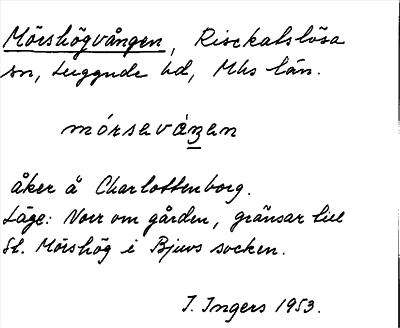 Mörshögvången, Risekatslösa
sn, Luggude hd, Mhs län.
mórsaváŋen
åker å Charlottenborg.
Läge: Norr om gården, gränsar till
St. Mörshög i Bjuvs socken.
I. Ingers 1953.